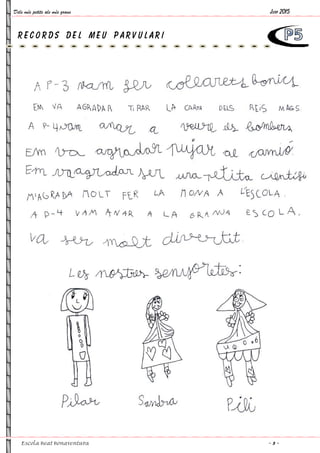 Dels més petits als més grans
Juny 2015
RECORDS DEL MEU PARVULARI
P5
A P-3 vam fer collarets bonics
EM VA AGRADAR TIRAR LA CARTA DELS REIS MAGS
A P-4 vam anar a veure els bombers
Em va agradar pujar al camió
Em va agradar ser una petita científi
M'AGRADA MOLT FER LA MONA A L'ESCOLA.
A P-4 VAM ANAR A LA GRANJA ESCOLA.
Va ser molt divertit.
Les nostres senyoretes:
Pilar Sandra Pili
Escola Beat Bonaventura